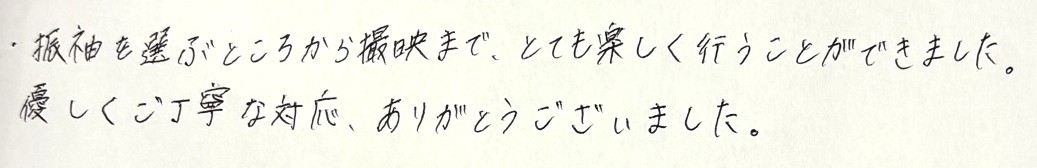 ・振袖を選ぶところから撮映まで、とても楽しく行うことができました。
優しくご丁寧な対応、ありがとうございました。